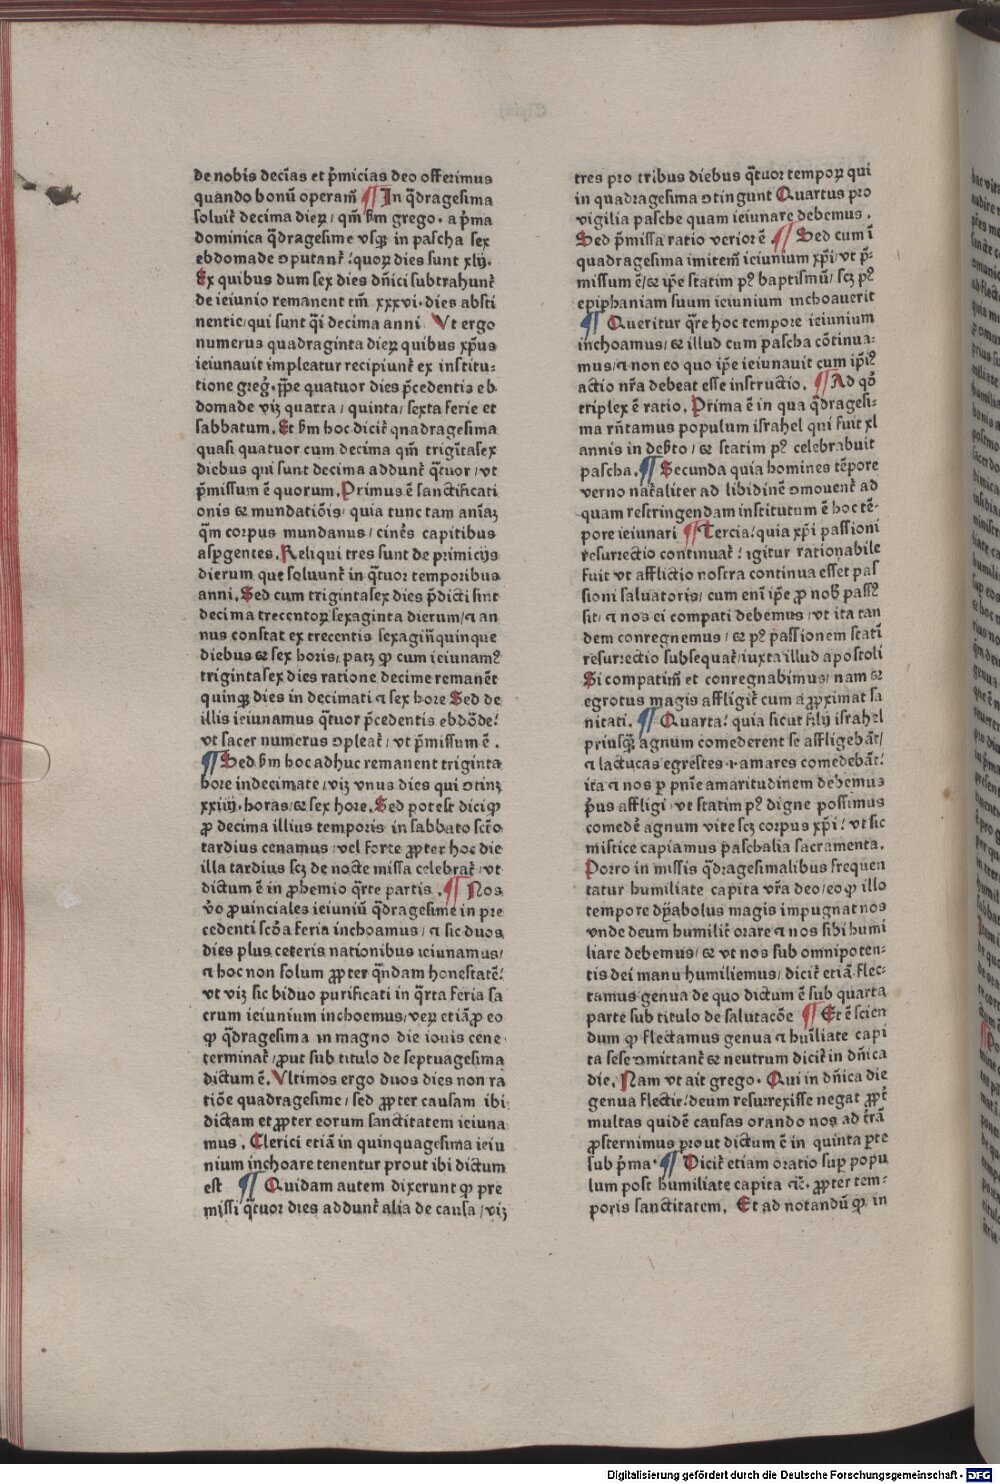 de nobis decīas et p̄micias deo offerimus
quando bonū operam̄ ¶ In q̄dragesima
soluit̄ decima dieꝝ / qm̄ ẜm grego. a p̄ma
dominica q̄dragesime vsqꝫ in pascha sex
ebdomade ↄputant̄ / quoꝝ dies sunt xlij.
Ex quibus dum sex dies dn̄ici subtrahunt̄
de ieiunio remanent tm̄ xxxvi. dies absti
nentie / qui sunt q̄i decima anni Vt ergo
numerus quadraginta dieꝝ quibus xp̄us
ieiunauit impleatur recipiunt̄ ex institu⸗
tione greg̓. ip̄e quatuor dies p̄cedentis eb
domade vizꝫ quarta / quinta / sexta ferie et
sabbatum. Et ẜm hoc dicit̄ qnadragesima
quasi quatuor cum decima qm̄ trigītasex
diebus qui sunt decima addunt̄ q̄tuor / vt
p̄missum ē quorum. Primus ē sanctificati
onis ⁊ mundatiōis / quia tunc tam aīaꝫ
q̄m corpus mundanus / cinēs capitibus
aspgentes. Reliqui tres sunt de primicijs
dierum que soluunt̄ in q̄tuor temporibus
anni. Sed cum trigintasex dies p̄dicti sint
decima trecentoꝝ sexaginta dierum / ⁊ an
nus constat ex trecentis sexagīnquinque
diebus ⁊ sex horis / patꝫ ꝙ cum ieiunamꝰ
trigintasex dies ratione decime remanēt
quinqꝫ dies in decimati ⁊ sex hore Sed de
illis ieiunamus q̄tuor p̄cedentis ebdōde /
vt sacer numerus ↄpleat̄ / vt p̄missum ē.
¶ Sed ẜm hoc adhuc remanent triginta
hore indecimate / viꝫ vnus dies qui ↄtinꝫ
xxiiij. horas / ⁊ sex hore. Sed potest dici ꝙ
ꝓ decima illius temporis in sabbato scō
tardius cenamus / vel forte ꝓpter hoc die
illa tardius scꝫ de nocte missa celebrat̄ / vt
dictum ē in ꝓhemio q̄rte partis. ¶ Nos
v̄o ꝓuinciales ieiuniū q̄dragesime in pre
cedenti scd̄a feria inchoamus / ⁊ sic duos
dies plus ceteris nationibus ieiunamus /
⁊ hoc non solum ꝓpter q̄ndam honestatē /
vt viꝫ sic biduo purificati in q̄rta feria sa
crum ieiunium inchoemus / veꝝ etiā ꝓ eo
ꝙ q̄dragesima in magno die iouis cene
terminat̄ / ꝓut sub titulo de septuagesima
dictum ē. Vltimos ergo duos dies non ra
tiōe quadragesime / sed ꝓpter causam ibi
dictam et ꝓpter eorum sanctitatem ieiuna
mus. Clerici etiā in quinquagesima ieiu
nium inchoare tenentur prout ibi dictum
est ¶ Quidam autem dixerunt ꝙ pre
missi q̄tuor dies addunt̄ alia de causa / viꝫ
tres pro tribus diebus q̄tuor tempoꝝ qui
in quadragesima ↄtingunt Quartus pro
vigilia pasche quam ieiunare debemus.
Sed p̄missa ratio verior ē. ¶ Sed cum ī
quadragesima imitem̄ ieiunium xp̄i / vt p̄⸗
missum ē / ⁊ ip̄e statim pꝰ baptismū / scꝫ pꝰ
epiphaniam suum ieiunium inchoauerit
¶ Queritur q̄re hoc tempore ieiunium
inchoamus / ⁊ illud cum pascha cōtinua⸗
mus / ⁊ non eo quo ip̄e ieiunauit cum ip̄iꝰ
actio nr̄a debeat esse instructio. ¶ Ad qd̄
triplex ē ratio. Prima ē in qua q̄dragesi⸗
ma rn̄tamus populum israhel qui fuit xl
annis in deẜto / ⁊ statim pꝰ celebrabuit
pascha. ¶ Secunda quia homines tēpore
verno nat̄aliter ad libidinē ↄmouent̄ ad
quam restringendam institutum ē hoc tē⸗
pore ieiunari ¶ Tercia / quia xp̄i passioni
resurrectio continuat̄ / igitur rationabile
fuit vt afflictio nostra continua esset pas
sioni saluatoris / cum enī ip̄e ꝓ nob̄ passꝰ
sit / ⁊ nos ei compati debemus / vt ita tan
dem conregnemus / ⁊ pꝰ passionem statī
resurrectio subsequat̄ / iuxta illud apostoli
Si compatim̄ et conregnabimus / nam ⁊
egrotus magis affligit̄ cum aꝓximat sa
nitati. ¶ Quarta / quia sicut filij israhel
priusq̄ꝫ agnum comederent se affligebāt /
⁊ lactucas egrestes ⁊ amares comedebāt /
ita ⁊ nos p pn̄ie amaritudinem debemus
p̄us affligi / vt statim pꝰ digne possimus
comedē agnum vite scꝫ corpus xp̄i / vt sic
mistice capiamus paschalia sacramenta.
Porro in missis q̄dragesimalibus frequen
tatur humiliate capita vr̄a deo / eo ꝙ illo
tempore dyabolus magis impugnat nos
vnde deum humilit̄ orare ⁊ nos sibi humi
liare debemus / ⁊ vt nos sub omnipoten⸗
tis dei manu humiliemus / dicit̄ etiā flec⸗
tamus genua de quo dictum ē sub quarta
parte sub titulo de salutacōe ¶ Et ē scien
dum ꝙ flectamus genua ⁊ hūiliate capi
ta sese ↄmittant̄ ⁊ neutrum dicit̄ in dn̄ica
die. Nam vt ait grego. Qui in dn̄ica die
genua flectit / deum resurrexisse negat ꝓpt̄
multas quidē causas orando nos ad t̄rā
ꝓsternimus prout dictum ē in quinta p̱te
sub p̄ma. ¶ Dicit̄ etiam oratio suꝑ popu
lum post humiliate capita ⁊c̄. ꝓpter tem⸗
poris sanctitatem. Et ad notandū ꝙ in
Digitalisierung gefördert durch die Deutsche Forschungsgemeinschaft - DFG